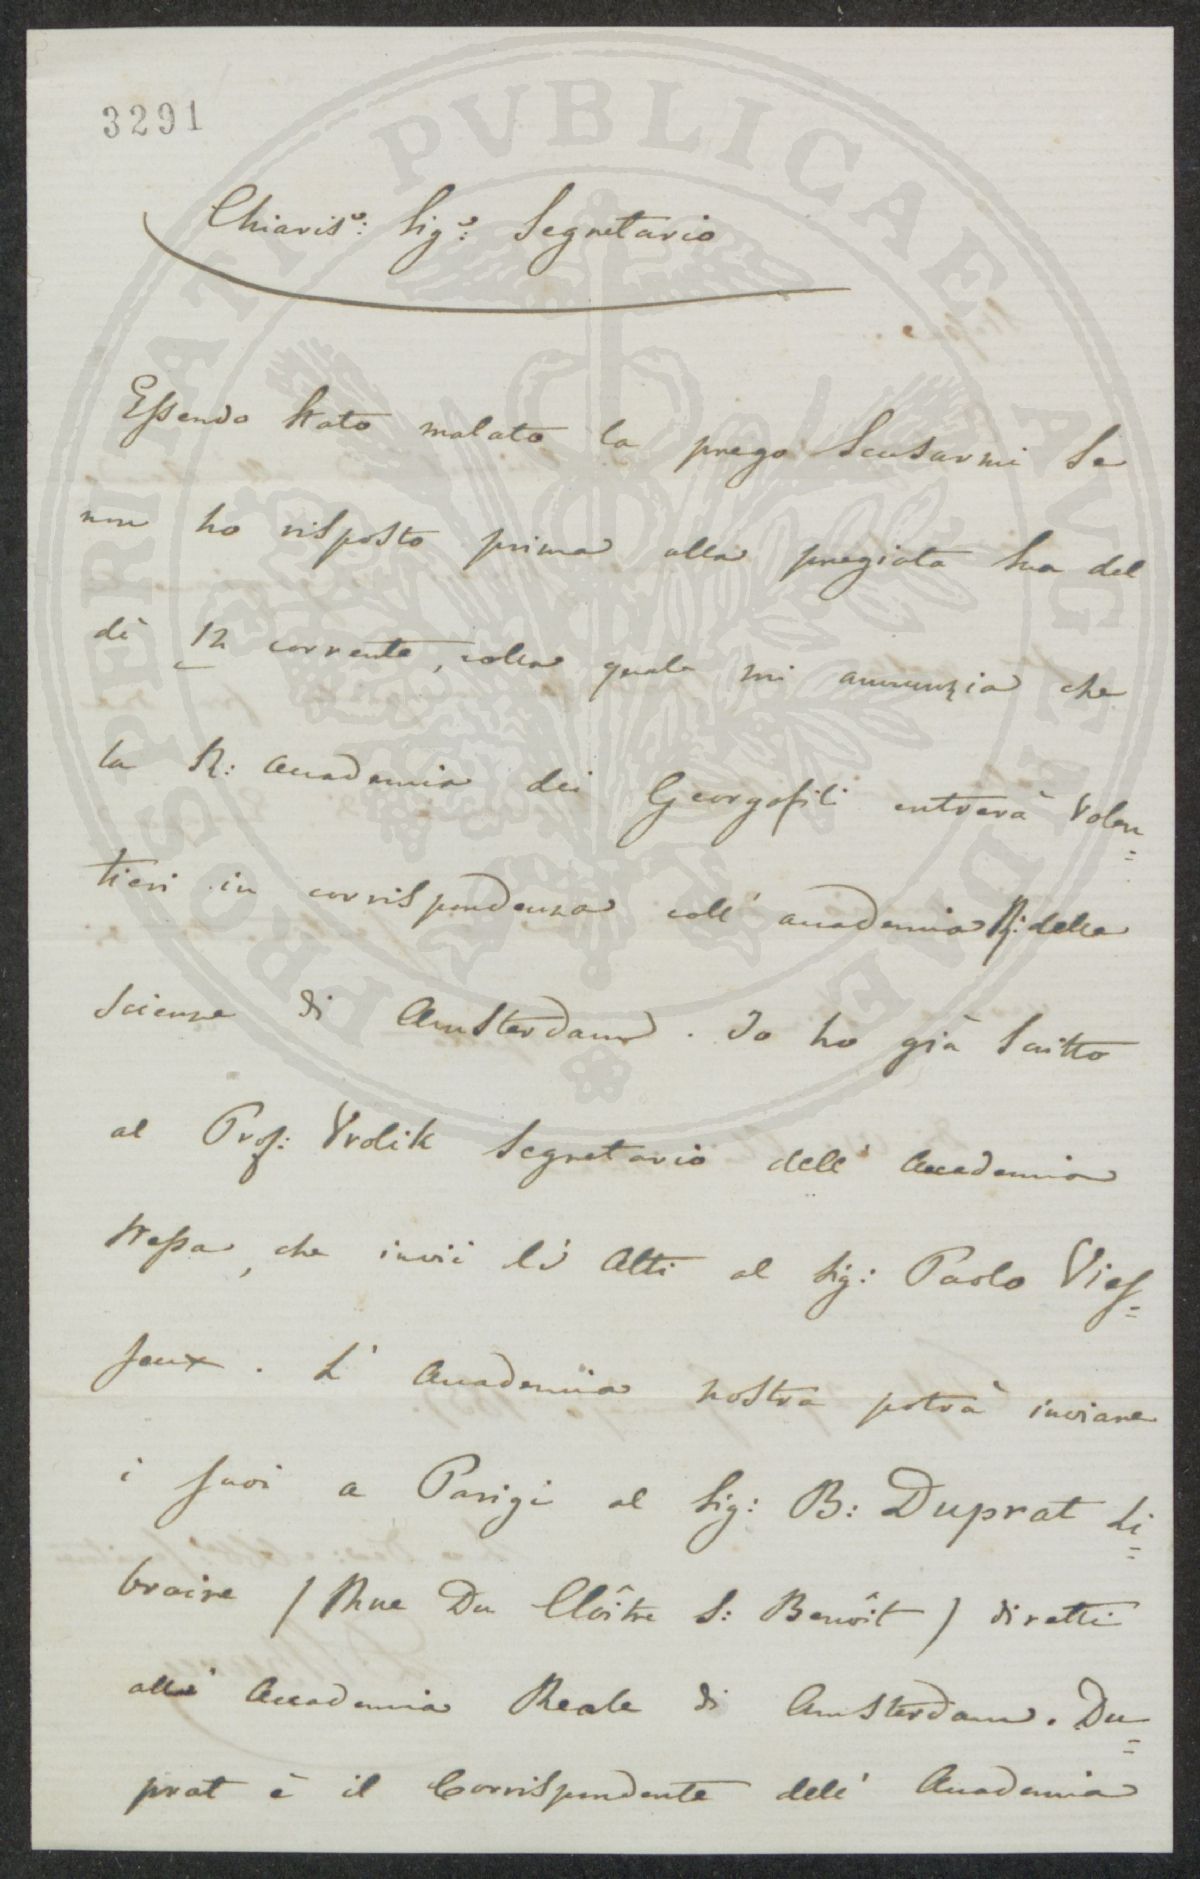 3291
Chiaris.o: Sig.e: Segretario
Essendo stato malato la prego scusarmi se
non ho risposto prima alla pregiata sua del
dì 12 corrente, colla quale mi annunzia che
la R: Accademia dei Georgofili entrerà volen=
tieri in corrispondenza coll' accademia R: delle
Scienze di Amsterdam. Io ho già scritto
al Prof: Vrolik Segretario dell' Accademia
stessa, che invii li Atti al Sig: Paolo Vies=
seux. L' Accademia nostra potrà inviare
i suoi a Parigi al Sig: B: Duprat Li=
braire / Rue Du Cloître S: Benôit / diretti
all' Accademia Reale di Amsterdam. Du=
prat è il Corrispondente dell' Accademia
PROSPERITATI PVBLICAE AVGENDAE